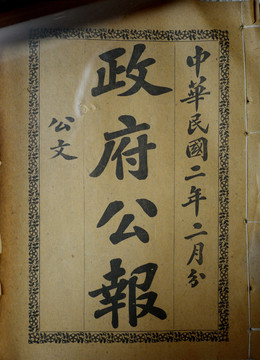 中華民國二年二月分
政府公報
公文